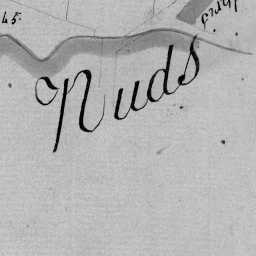 45.
Nuds